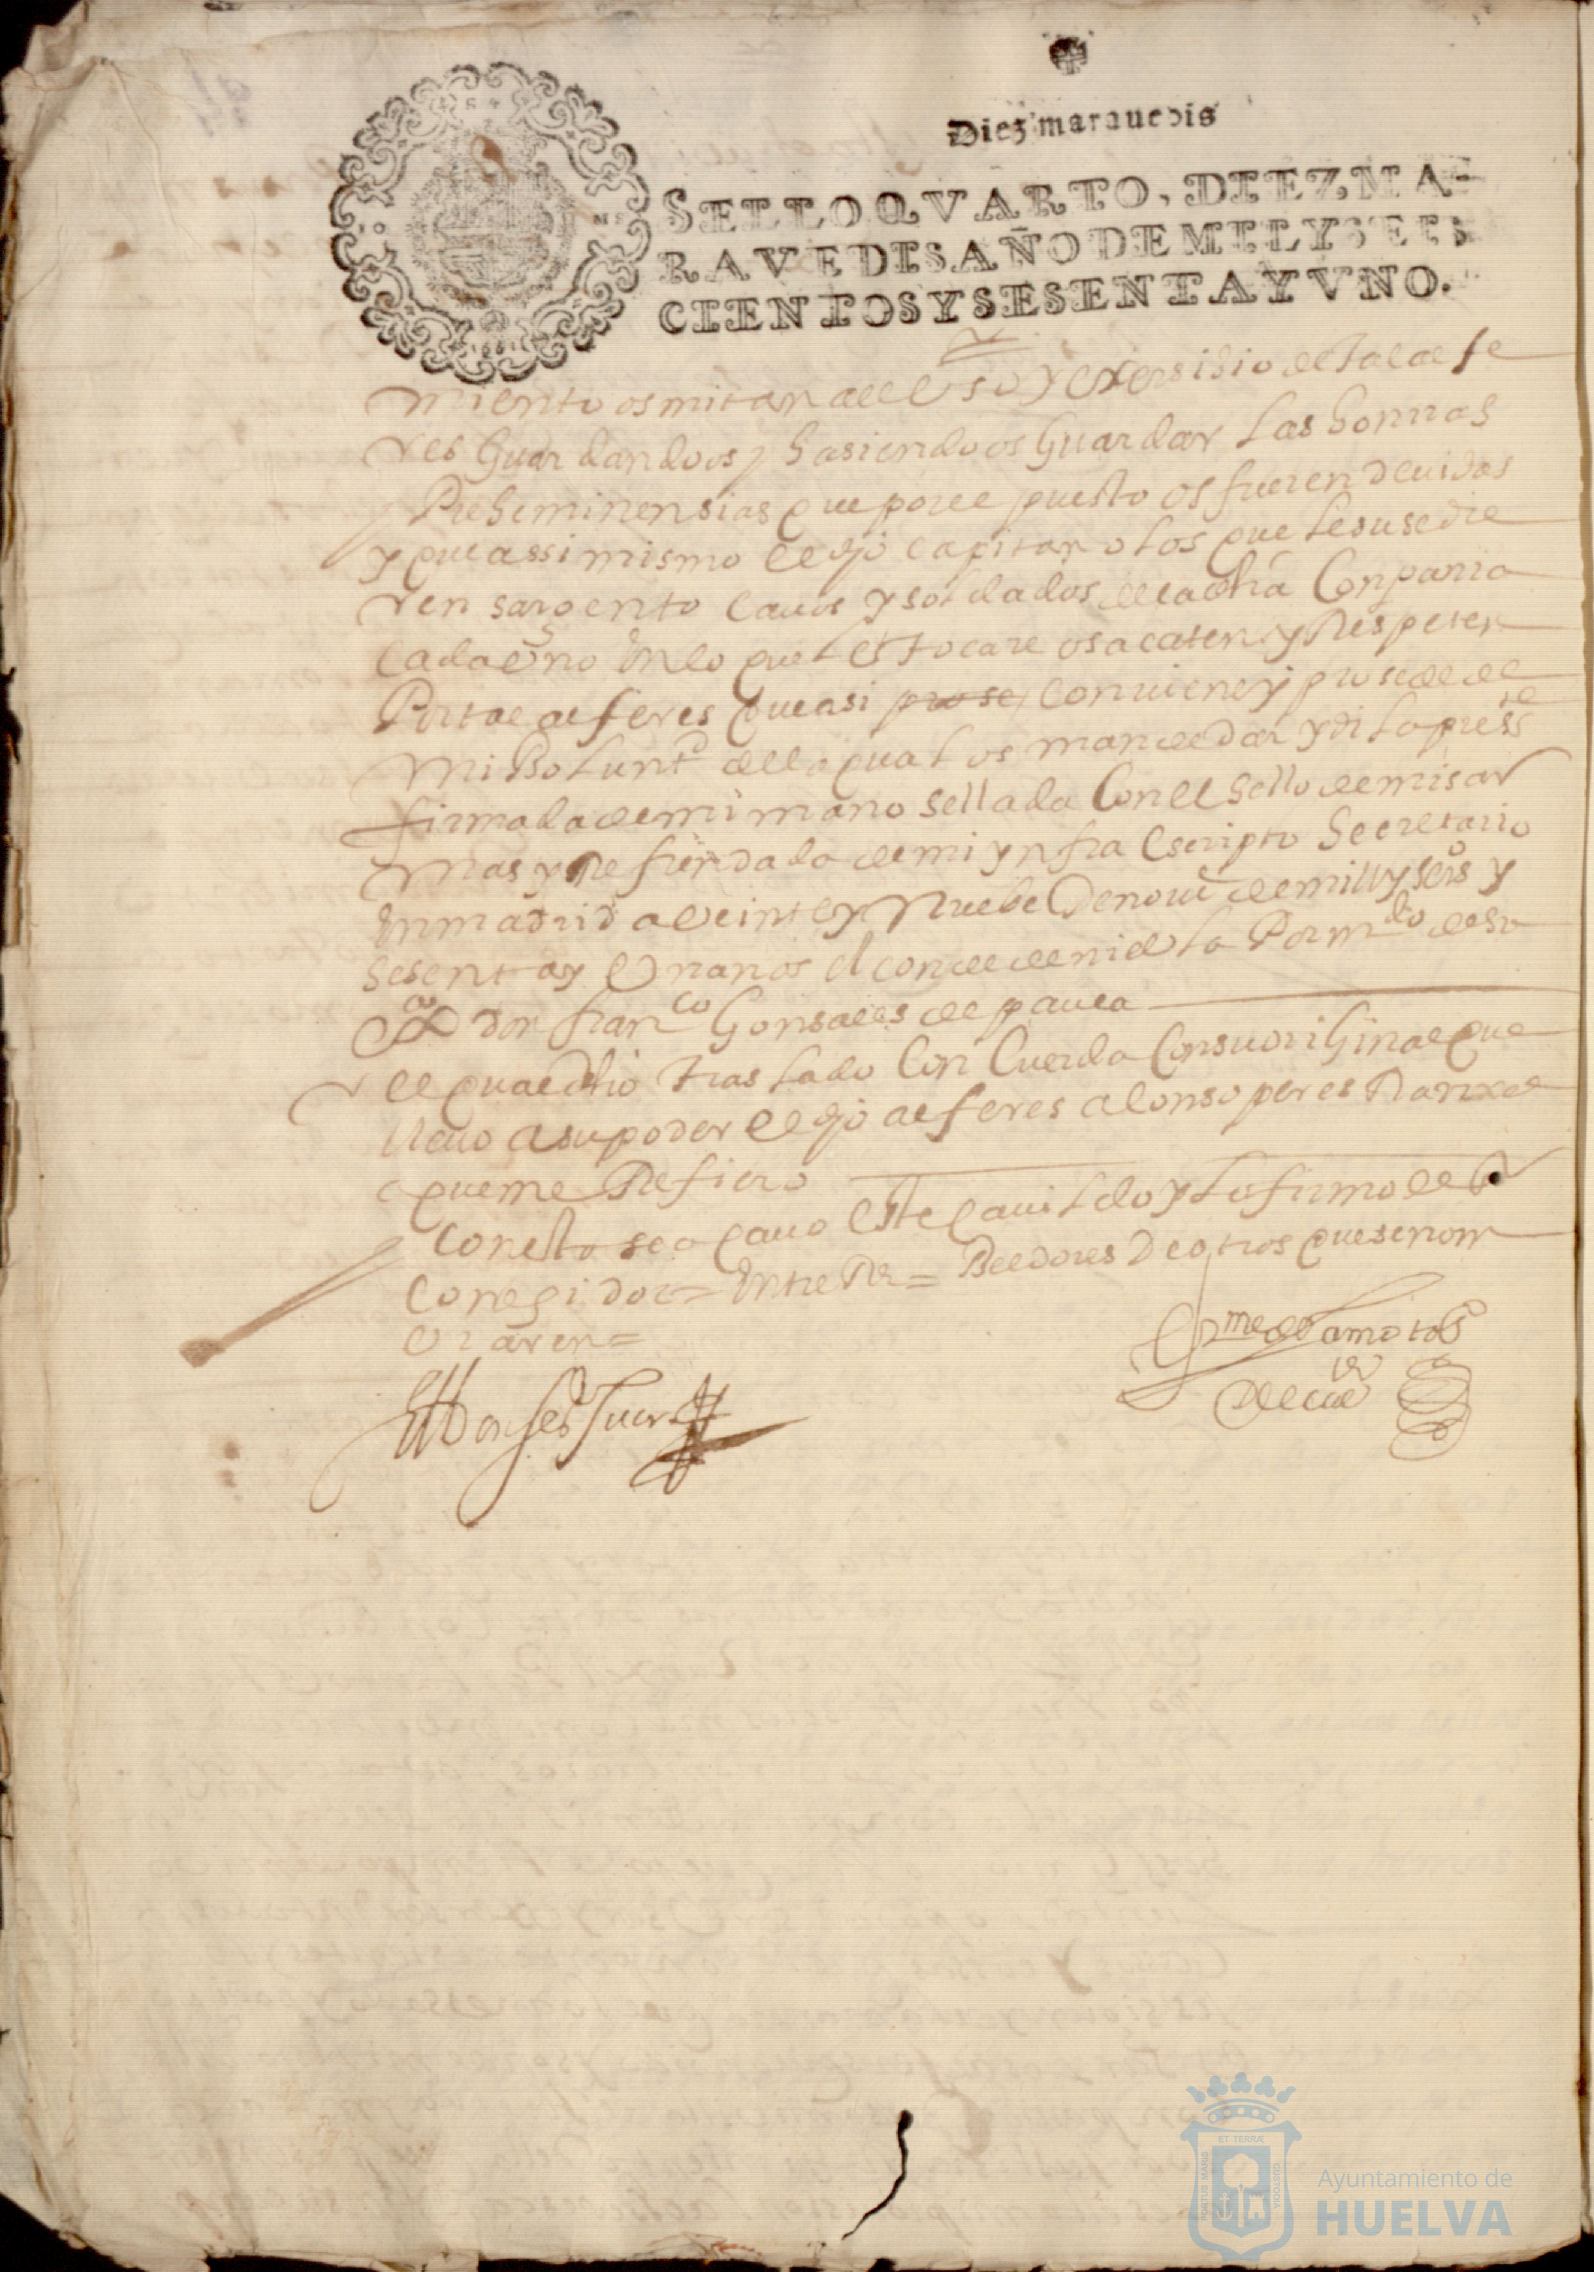 Diez marauedis
SELLO QVARTO, DIEZ MA-
RAVEDIS AÑO DE MIL Y SEIS
CIENTOS Y SESENTA Y VNO.
miento osmitan del Uso y exersisio de tal alfe
res Guardandoos y hasiendoos Guardar las honrras
Preheminensias que por el puesto os fueren deuidas
y que assi mismo el dho capitan o los que le susedie
ren sargento cauos y soldados de la dha Conpania
cada Uno En lo que les tocare os acaten y Respeten
Por tal alferes que asi prose conuiene y prosede de
mi Boluntd de lo qual os mande dar y di la presste
firmada de mi mano sellada Con el Sello de mis ar
mas y Refrendada de mi ynfra escripto Secretario
En madrid a Veinte y Nuebe De nou de mill y seis y
sesenta y Un anos el conde de  Por mdo de su
 don franco Gonsales de
el qual dho traslado Con Cuerda Con su oriGinal que
lleuo a su poder el dho alferes alonso peres
a que me Refiero
Con esto se acauo este cauildo y lo firmo el
Coregidor = Entre Rs = Beedores De otros que se nom
braren =

Ayuntamiento de
HUELVA